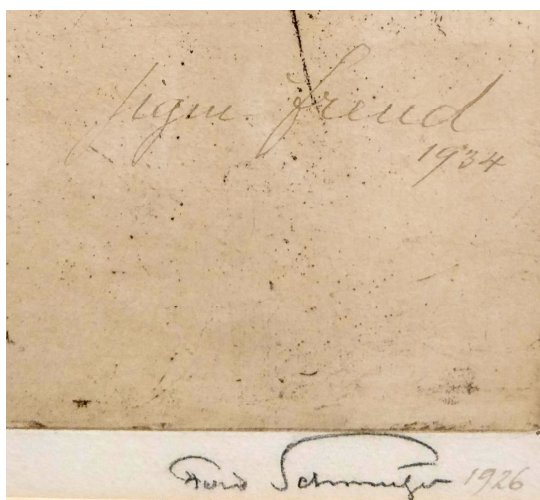 Sigm. Freud
1934
Ferd Schmutzer 1926